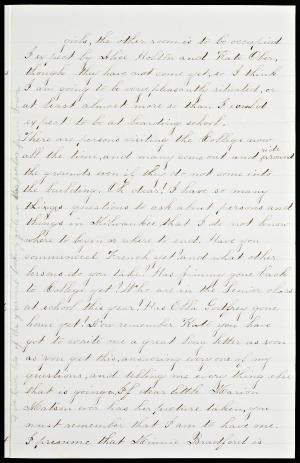 girls, the other room is to be occupied
I expect by Alice Holston and Kate Ober,
though they have not come yet, so I think
I am going to be very pleasantly situated, or
at least almost more so than I could
expect to be at boarding school.
There are persons visiting the College now
all the time, and many come out and ride around
the grounds even if they do not come into
the building. Oh dear! I have so many
things questions to ask about persons and
things in Milwaukee that I do not know
where to begin or where to end. Have you
commenced French yet and what other
lessons do you take? Has Jimmy gone back
to College yet? Who are in the Senior class
at school this year? Has Ella Godfrey gone
home yet? Now remember Kate you have
got to write me a great long letter as soon
as you get this, answering every one of my
questions, and telling me every thing else
that is going on. If dear little Marion
Matson ever has her picture taken, you
must remember that I am to have one.
I presume that Minnie Bradford is